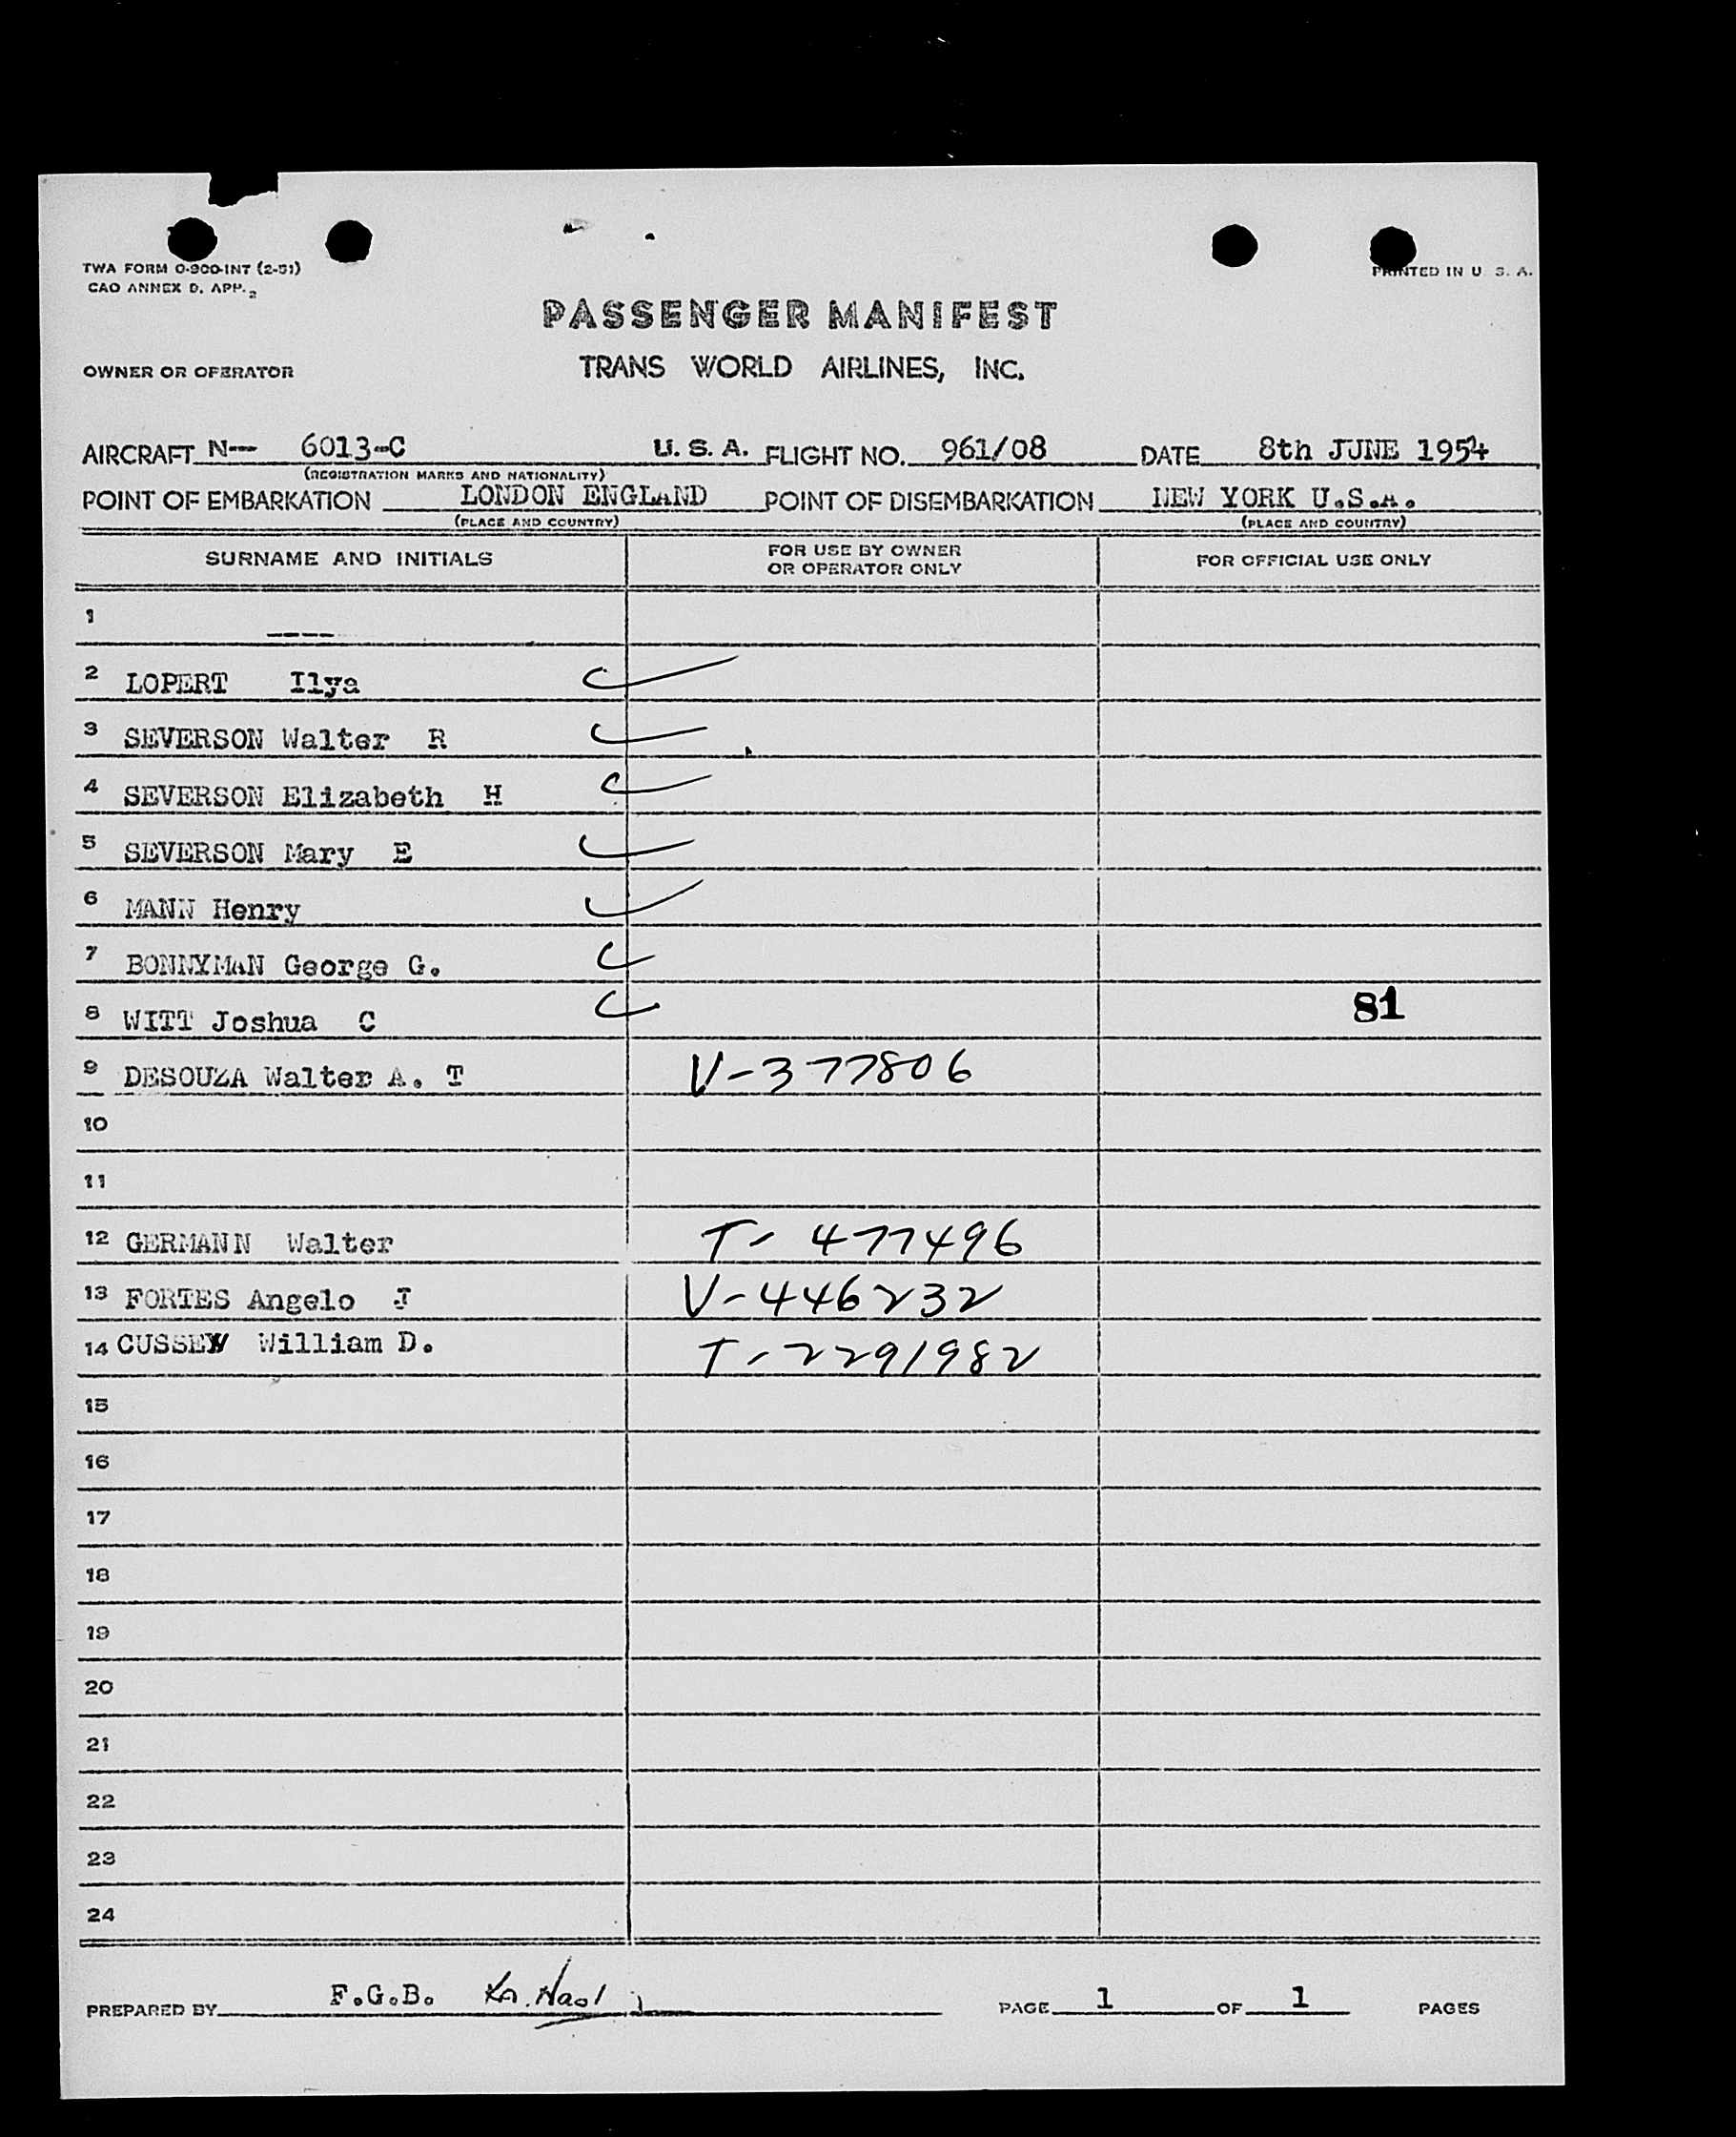 TWA FORM O-900-INT (2-51)
CAO ANNEX D, APP. 2
PRINTED IN U. S. A.
PASSENGER MANIFEST
OWNER OR OPERATOR
TRANS WORLD AIRLINES, INC.
AIRCRAFT N-- 6013-C U. S. A. FLIGHT NO. 961/08 DATE 8th JUNE 1954
(REGISTRATION MARKS AND NATIONALITY)
POINT OF EMBARKATION LONDON ENGLAND POINT OF DISEMBARKATION NEW YORK U.S.A.
(PLACE AND COUNTRY) (PLACE AND COUNTRY)
SURNAME AND INITIALS FOR USE BY OWNER OR OPERATOR ONLY FOR OFFICIAL USE ONLY
1 ----
2 LOPERT Ilya
3 SEVERSON Walter R
4 SEVERSON Elizabeth H
5 SEVERSON Mary E
6 MANN Henry
7 BONNYMAN George G.
8 WITT Joshua C 81
9 DESOUZA Walter A. T V-377806
10
11
12 GERMANN Walter T- 477496
13 FORTES Angelo J V-446232
14 CUSSEN William D. T-2291982
15
16
17
18
19
20
21
22
23
24
PREPARED BY F.G.B. PAGE 1 OF 1 PAGES